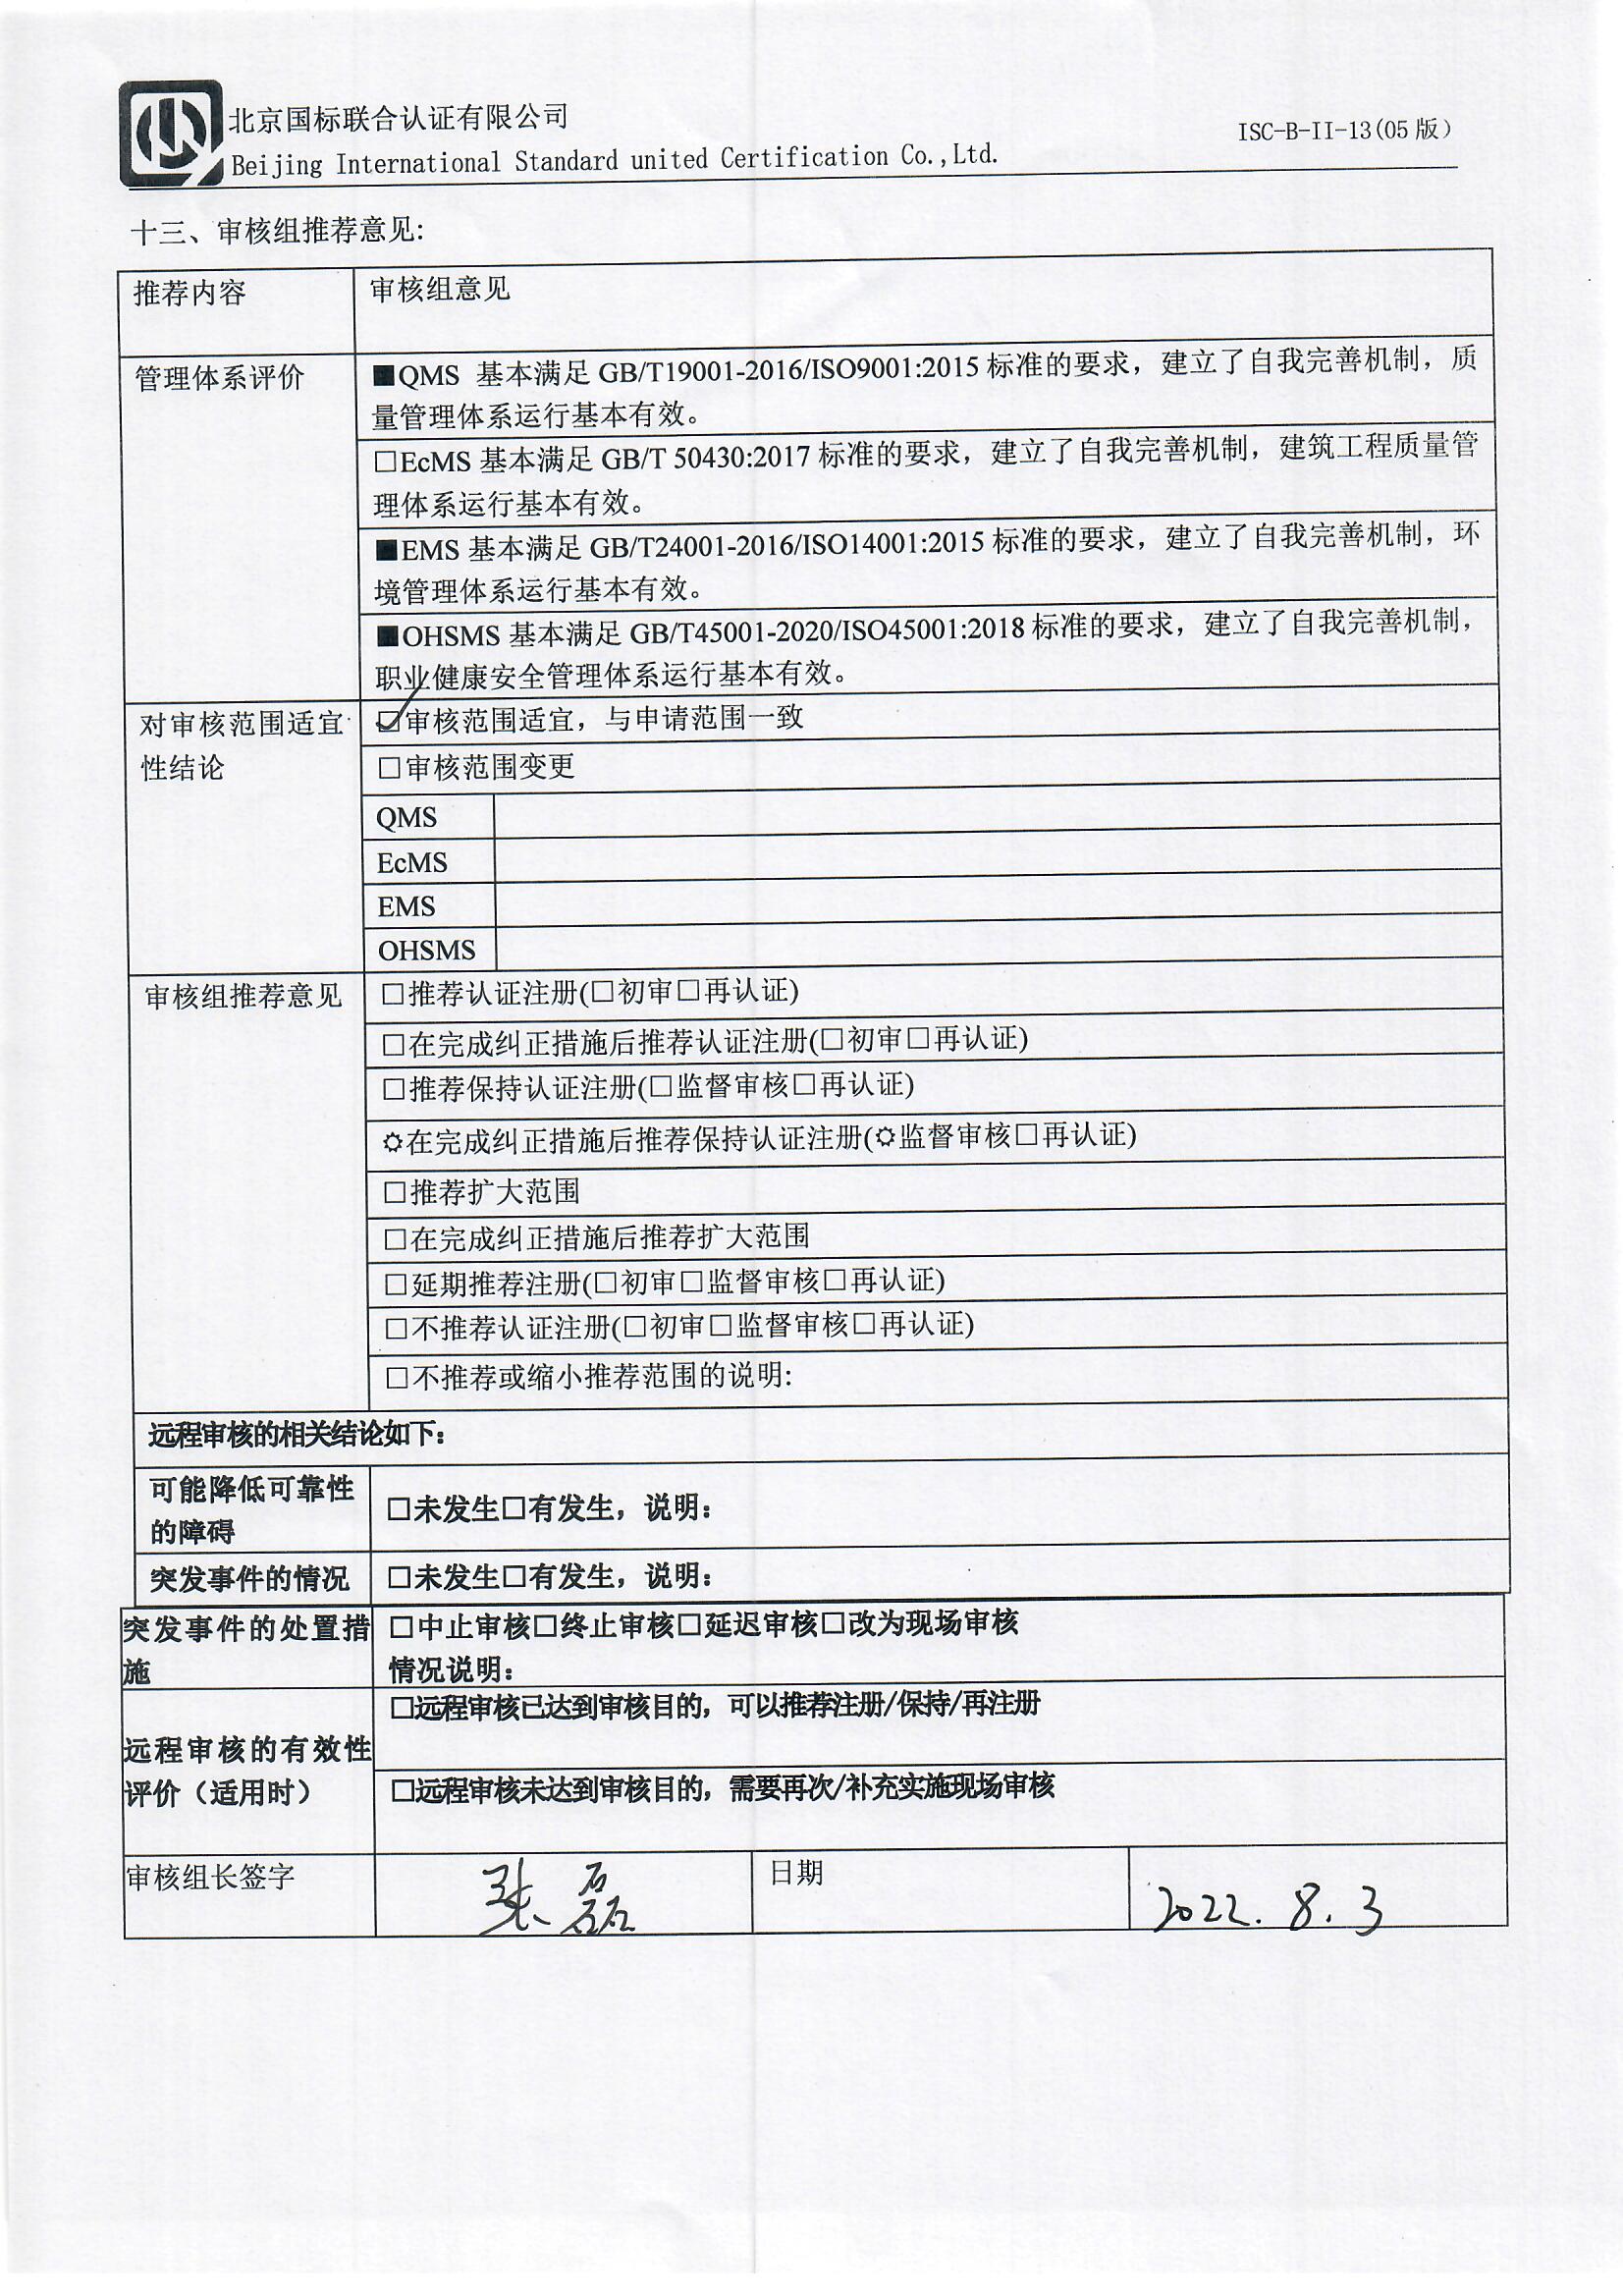 北京国标联合认证有限公司
ISC-B-II-13(05 版)
Beijing International Standard united Certification Co.,Ltd.
十三、审核组推荐意见:
推荐内容
审核组意见
管理体系评价
■QMS 基本满足 GB/T19001-2016/ISO9001:2015 标准的要求，建立了自我完善机制，质
量管理体系运行基本有效。
□EcMS 基本满足 GB/T 50430:2017 标准的要求，建立了自我完善机制，建筑工程质量管
理体系运行基本有效。
■EMS 基本满足 GB/T24001-2016/ISO14001:2015 标准的要求，建立了自我完善机制，环
境管理体系运行基本有效。
■OHSMS 基本满足 GB/T45001-2020/ISO45001:2018 标准的要求，建立了自我完善机制，
职业健康安全管理体系运行基本有效。
对审核范围适宜
性结论
☑审核范围适宜，与申请范围一致
□审核范围变更
QMS
EcMS
EMS
OHSMS
审核组推荐意见
□推荐认证注册(□初审□再认证)
□在完成纠正措施后推荐认证注册(□初审□再认证)
□推荐保持认证注册(□监督审核□再认证)
✡在完成纠正措施后推荐保持认证注册(✡监督审核□再认证)
□推荐扩大范围
□在完成纠正措施后推荐扩大范围
□延期推荐注册(□初审□监督审核□再认证)
□不推荐认证注册(□初审□监督审核□再认证)
□不推荐或缩小推荐范围的说明:
远程审核的相关结论如下：
可能降低可靠性
的障碍
□未发生□有发生，说明：
突发事件的情况
□未发生□有发生，说明：
突发事件的处置措
施
□中止审核□终止审核□延迟审核□改为现场审核
情况说明：
远程审核的有效性
评价（适用时）
□远程审核已达到审核目的，可以推荐注册/保持/再注册
□远程审核未达到审核目的，需要再次/补充实施现场审核
审核组长签字
张磊
日期
2022.8.3